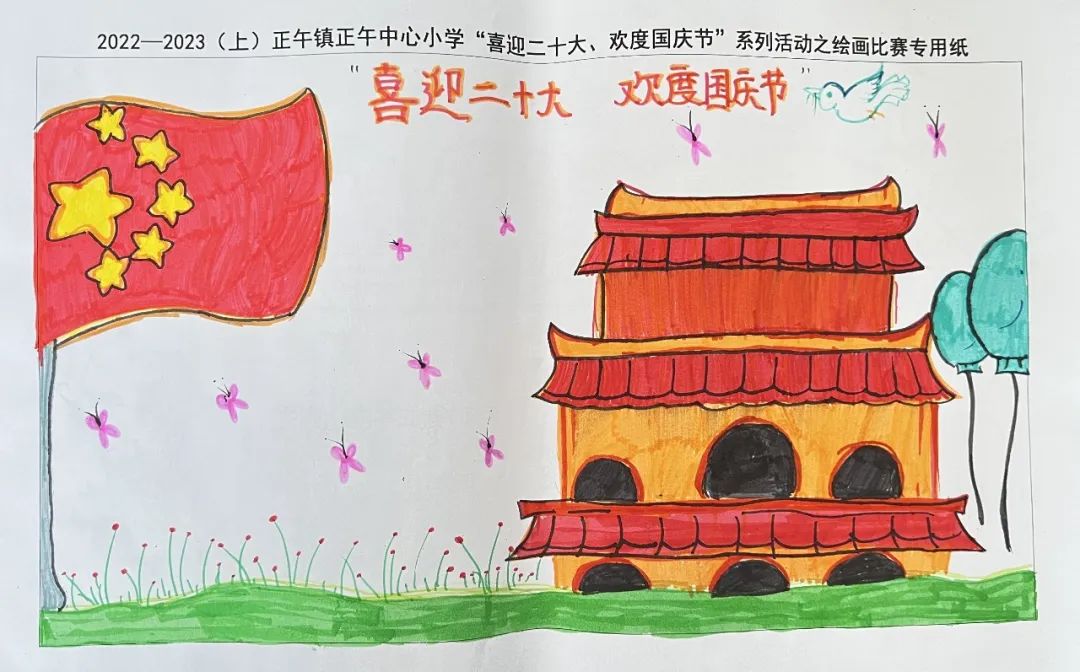 2022—2023（上）正午镇正午中心小学“喜迎二十大、欢度国庆节”系列活动之绘画比赛专用纸
“喜迎二十大 欢度国庆节”